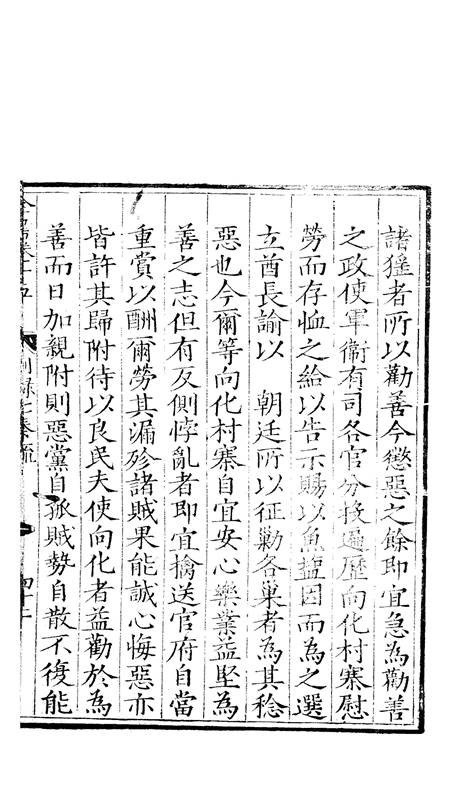 諸猺者所以勸善今懲惡之餘即宜急為勸善
之政使軍衛有司各官分投遍歷向化村寨慰
勞而存恤之給以告示賜以魚鹽因而為之選
立酋長諭以　朝廷所以征勦各巢者為其稔
惡也今爾等向化村寨自宜安心樂業益堅為
善之志但有反側悖亂者即宜擒送官府自當
重賞以酬爾勞其漏殄諸賊果能誠心悔惡亦
皆許其歸附待以良民夫使向化者益勸於為
善而日加親附則惡黨自孤賊勢自散不復能